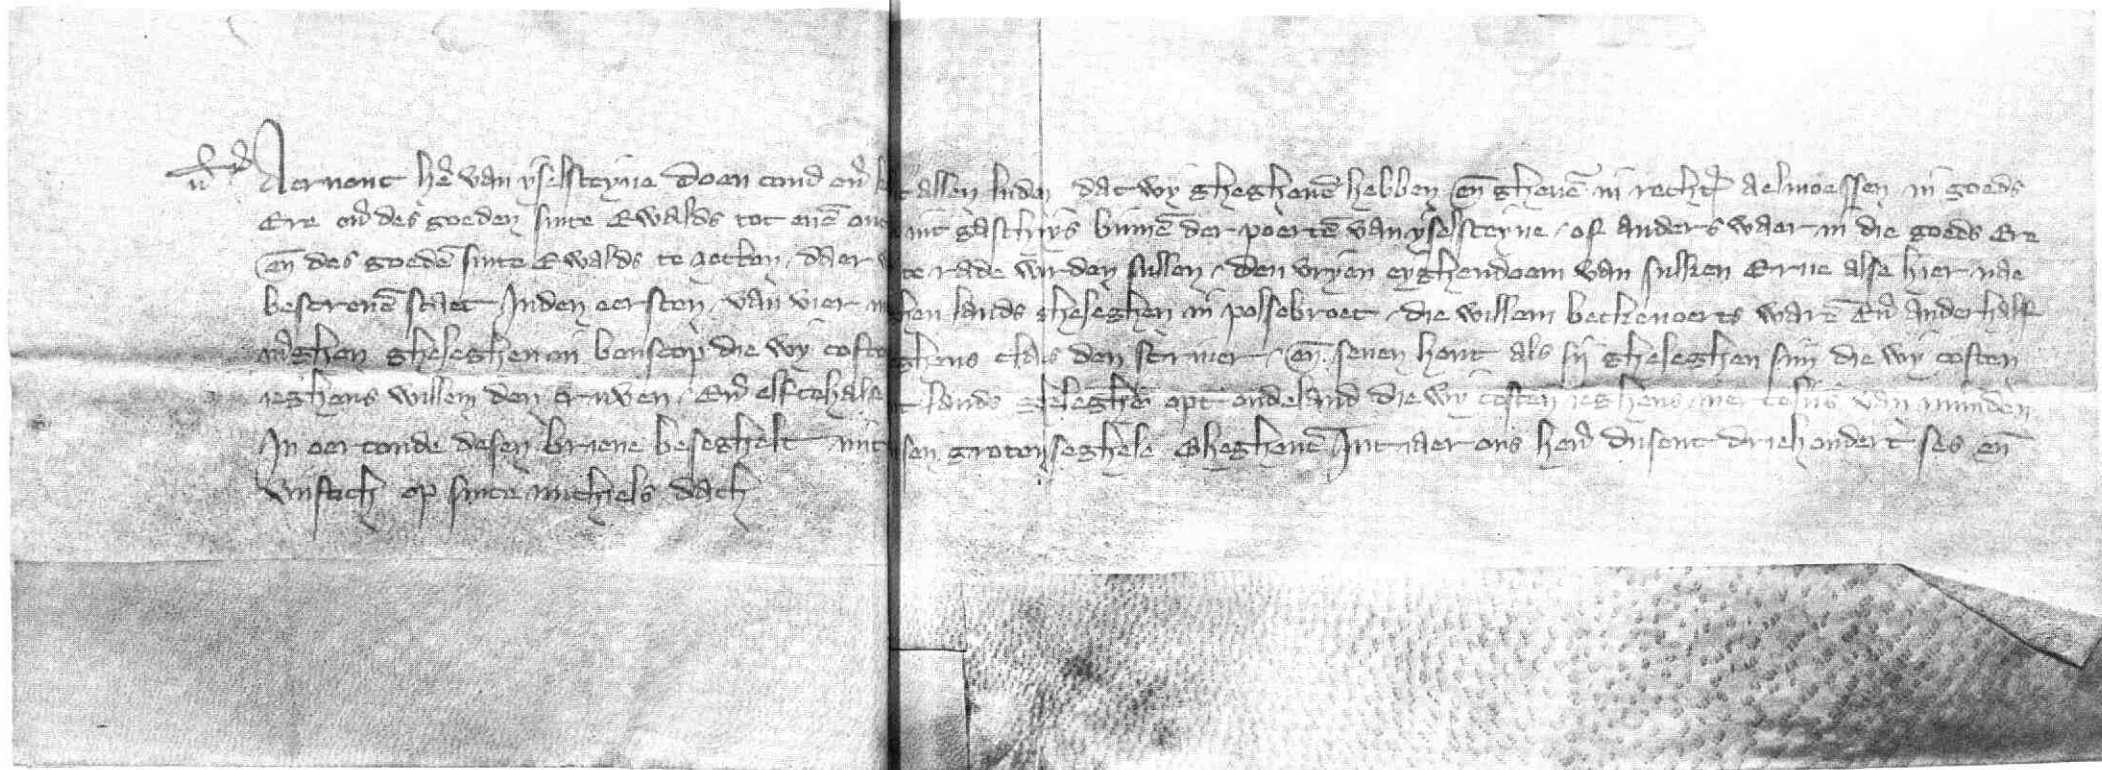 Aernout he͠r van yselsteyne doen cond en͠ allen luden dat wy ghegheue͠ hebben en͠ gheue͠ in rechter aelmoessen in goeds
Ere en͠ des goeden sinte Ewalds tot ene͠ gasthuys binne͠ der poerte͠ van yselsteyne / of anders waer in die goeds Ere
en͠ des goede͠ sinte Ewalds te daer te rade wirden sullen / den vryen eyghendoem van sulken Erue alse hier nae
bescreue͠ staet Inden eersten / van vier lands gheleghen in polsebroec / die willem beckenoerts ware͠ En͠ anderhalf
m͠ghen gheleghen in benscop die wy coften ieghens claes den scriuer / en͠ seuen hont als sij gheleghen siin die wy coften
ieghens willem den / En͠ elftehalf lands gheleghe͠ opt oudeland die wy coften ieghens van minden
In oerconde desen brieue beseghelt mit onsen groten seghele Ghegheue͠ Int iaer ons here͠ dusent driehondert ses en͠
viiftich op sinte michiels dach